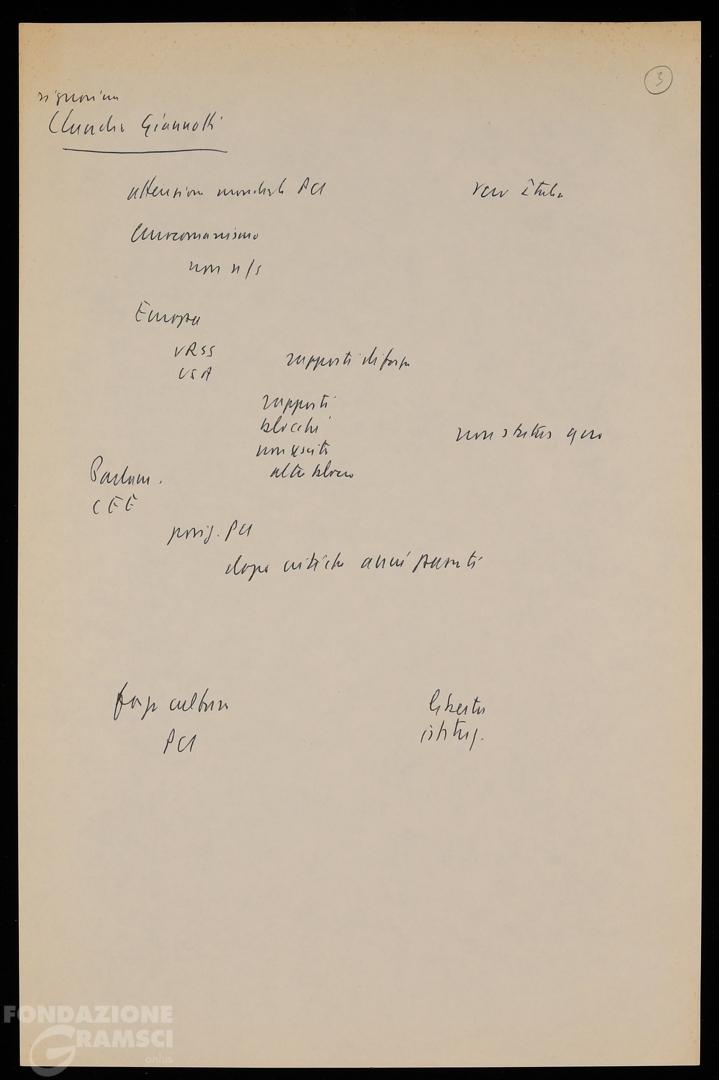 3
signorina
Claudia Giannotti
attenzione mondiale PCI
vero Italia
Eurocomunismo
non
Europa
URSS
USA
rapporti di forza
rapporti
blocchi
non uscita
altro blocco
non status quo
Parlam.
CEE
posiz. PCI
dopo critiche anni passati
forze cultura
PCI
libertà
istituz.
FONDAZIONE
GRAMSCI
onlus